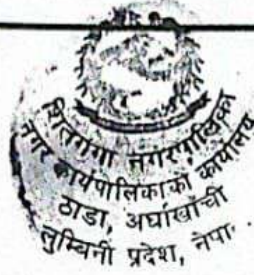 शितगंगा नगरपालिका
नगर कार्यपालिकाको कार्यालय
ठाडा, अर्घाखाँची
लुम्बिनी प्रदेश, नेपा